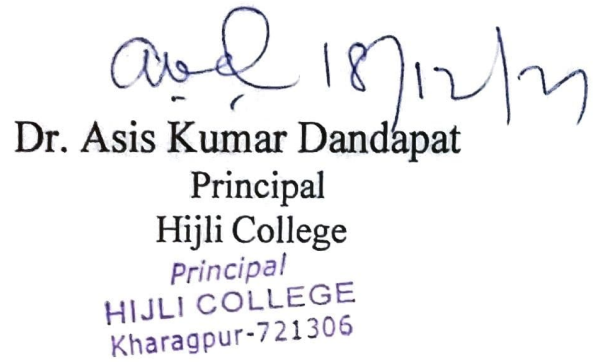 18/12/21
Dr. Asis Kumar Dandapat
Principal
Hijli College
Principal
HIJLI COLLEGE
Kharagpur-721306